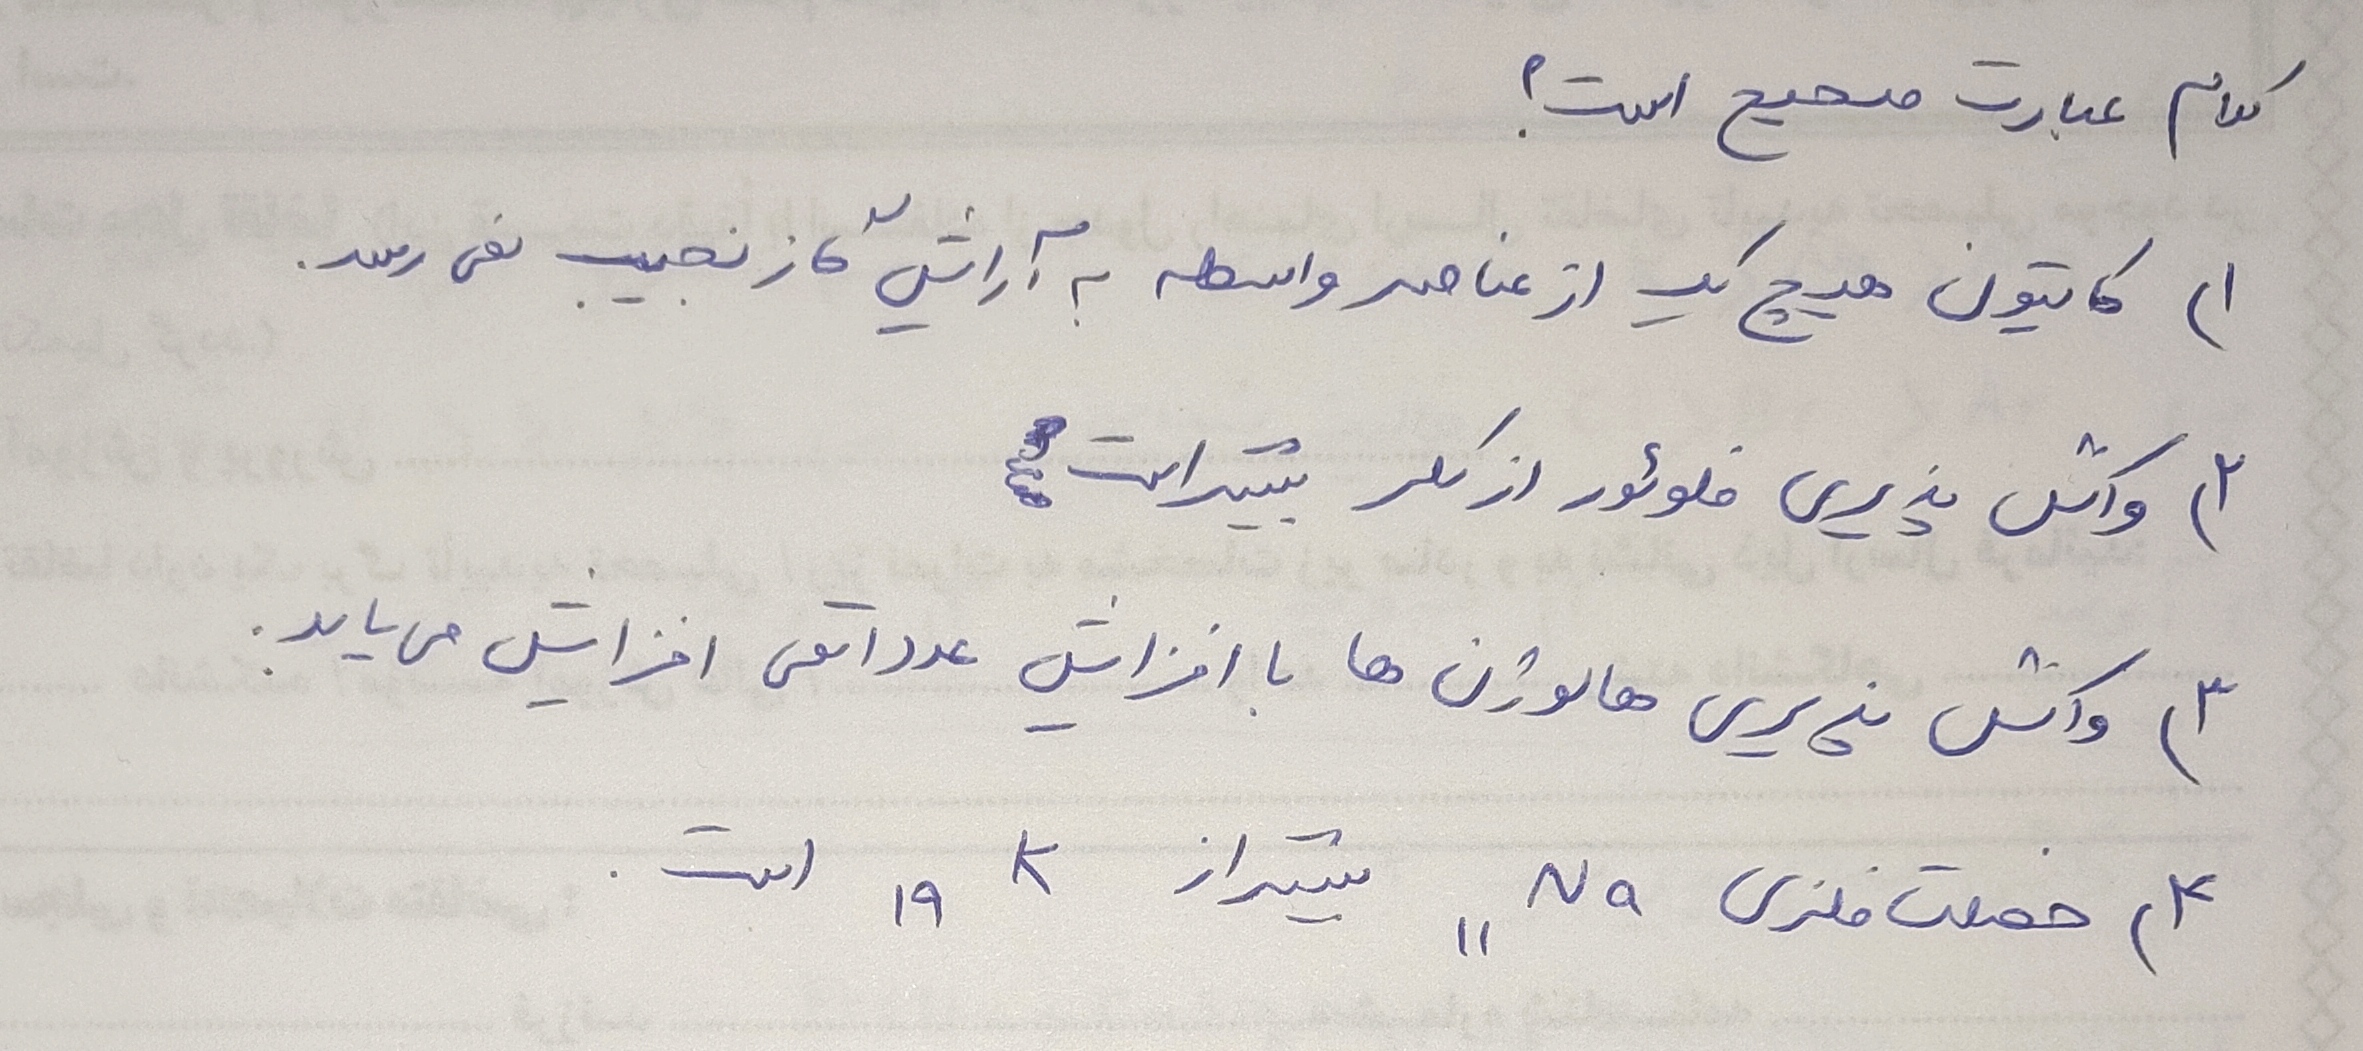 کدام عبارت صحیح است؟
۱) کاتیون هیچ یک از عناصر واسطه به آرایش گاز نجیب نمی رسد.
۲) واکنش پذیری فلوئور از کلر بیشتر است
۳) واکنش پذیری هالوژن ها با افزایش عدد اتمی افزایش می یابد.
۴) خصلت فلزی ₁₁Na بیشتر از ₁₉K است.